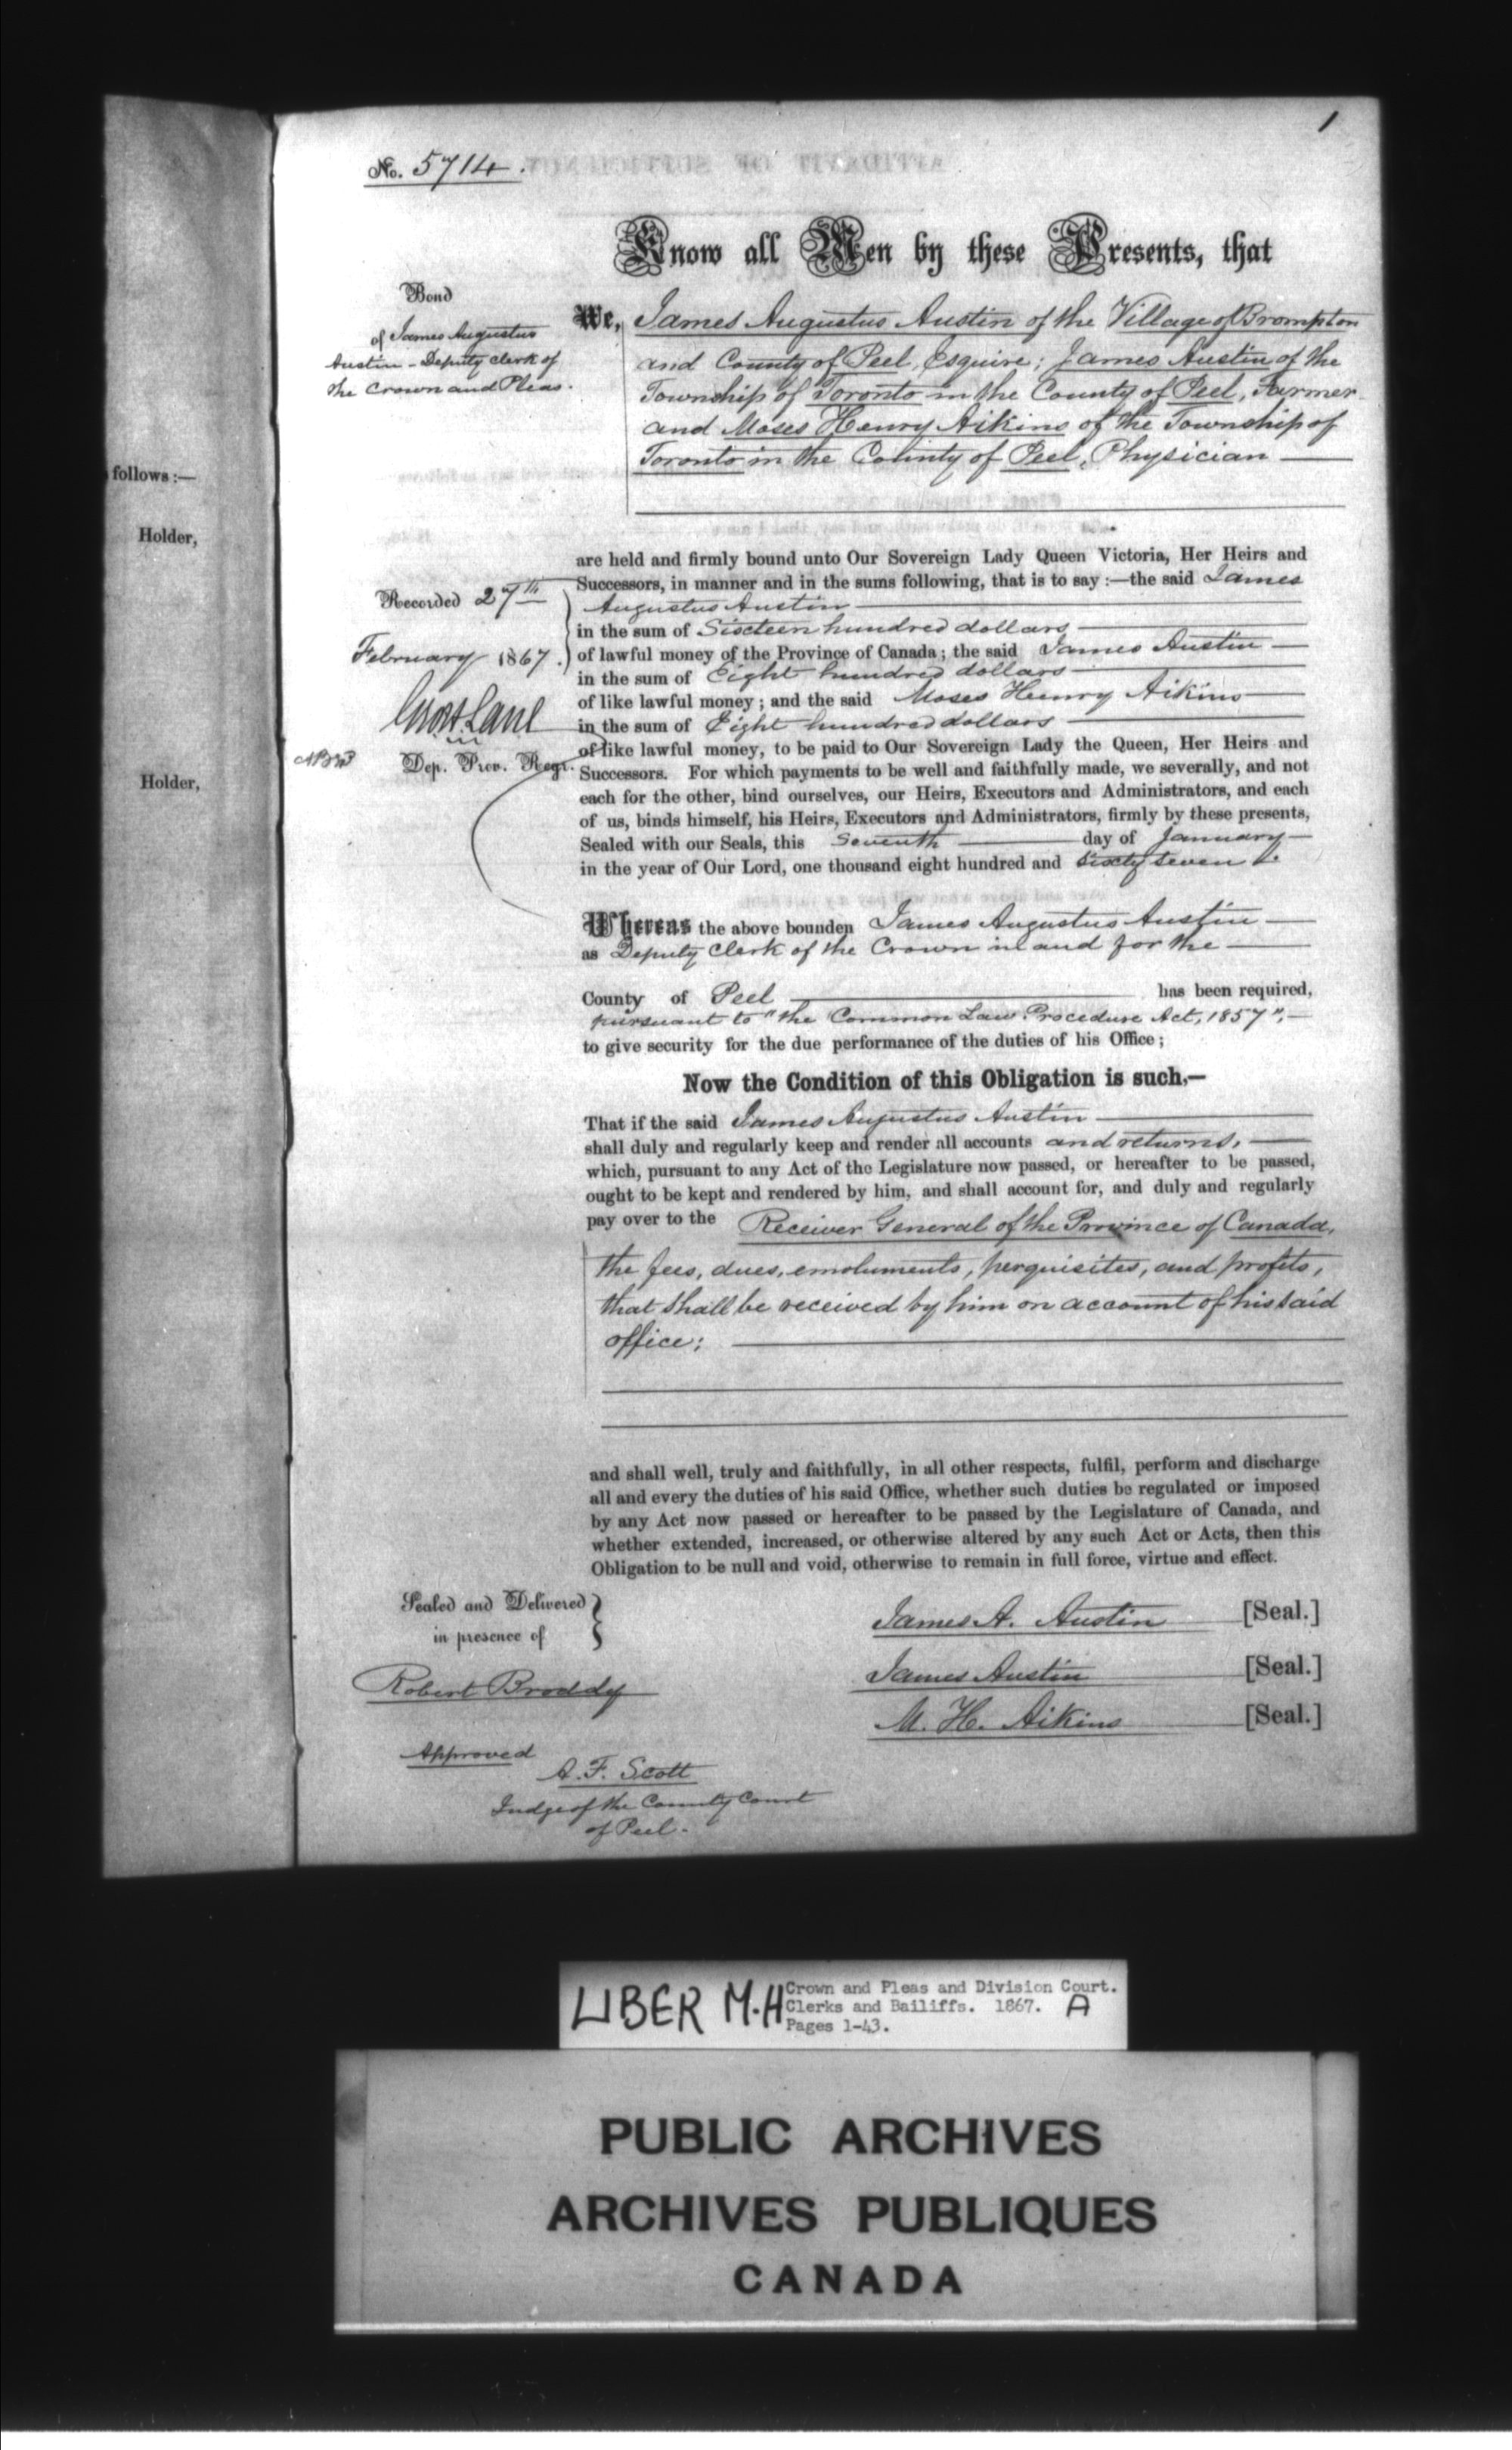 1
No. 5714.
Know all Men by these Presents, that
Bond
of James Augustus
Austin - Deputy Clerk of
the Crown and Pleas.
We, James Augustus Austin of the Village of Brompton
and County of Peel, Esquire; James Austin of the
Township of Toronto in the County of Peel, Farmer
and Moses Henry Aikins of the Township of
Toronto in the County of Peel, Physician
follows:—
Holder,
Holder,
are held and firmly bound unto Our Sovereign Lady Queen Victoria, Her Heirs and
Successors, in manner and in the sums following, that is to say:—the said James
Augustus Austin
in the sum of Sixteen hundred dollars
of lawful money of the Province of Canada; the said James Austin
in the sum of Eight hundred dollars
of like lawful money; and the said Moses Henry Aikins
in the sum of Eight hundred dollars
of like lawful money, to be paid to Our Sovereign Lady the Queen, Her Heirs and
Successors. For which payments to be well and faithfully made, we severally, and not
each for the other, bind ourselves, our Heirs, Executors and Administrators, and each
of us, binds himself, his Heirs, Executors and Administrators, firmly by these presents,
Sealed with our Seals, this Seventh day of January
in the year of Our Lord, one thousand eight hundred and sixty seven.
Recorded 27th
February 1867.
Lane
Dep. Prov. Regr.
Whereas the above bounden James Augustus Austin
as Deputy Clerk of the Crown in and for the
County of Peel has been required,
pursuant to "the Common Law Procedure Act, 1857",
to give security for the due performance of the duties of his Office;
Now the Condition of this Obligation is such,—
That if the said James Augustus Austin
shall duly and regularly keep and render all accounts and returns,
which, pursuant to any Act of the Legislature now passed, or hereafter to be passed,
ought to be kept and rendered by him, and shall account for, and duly and regularly
pay over to the Receiver General of the Province of Canada,
the fees, dues, emoluments, perquisites, and profits,
that shall be received by him on account of his said
office;
and shall well, truly and faithfully, in all other respects, fulfil, perform and discharge
all and every the duties of his said Office, whether such duties be regulated or imposed
by any Act now passed or hereafter to be passed by the Legislature of Canada, and
whether extended, increased, or otherwise altered by any such Act or Acts, then this
Obligation to be null and void, otherwise to remain in full force, virtue and effect.
Sealed and Delivered
in presence of
Robert Broddy
James A. Austin [Seal.]
James Austin [Seal.]
M. H. Aikins [Seal.]
Approved
A. F. Scott
Judge of the County Court
of Peel.
LIBER M.H
Crown and Pleas and Division Court.
Clerks and Bailiffs. 1867. A
Pages 1-43.
PUBLIC ARCHIVES
ARCHIVES PUBLIQUES
CANADA